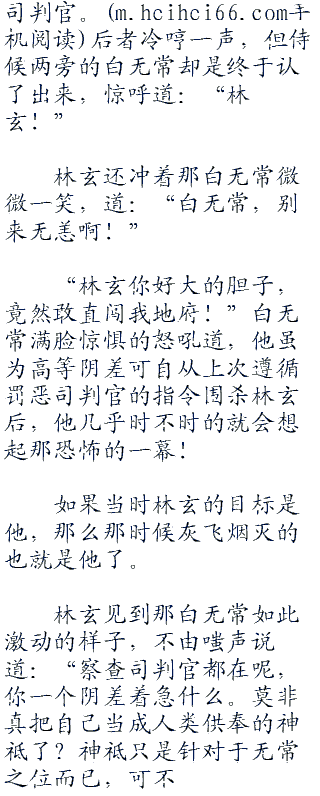 司判官。(m.hcihci66.com手
机阅读)后者冷哼一声，但侍
候两旁的白无常却是终于认
了出来，惊呼道：“林
玄！”
林玄还冲着那白无常微
微一笑，道：“白无常，别
来无恙啊！”
“林玄你好大的胆子，
竟然敢直闯我地府！”白无
常满脸惊惧的怒吼道，他虽
为高等阴差可自从上次遵循
罚恶司判官的指令围杀林玄
后，他几乎时不时的就会想
起那恐怖的一幕！
如果当时林玄的目标是
他，那么那时候灰飞烟灭的
也就是他了。
林玄见到那白无常如此
激动的样子，不由嗤声说
道：“察查司判官都在呢，
你一个阴差着急什么。莫非
真把自己当成人类供奉的神
祗了？神祗只是针对于无常
之位而已，可不